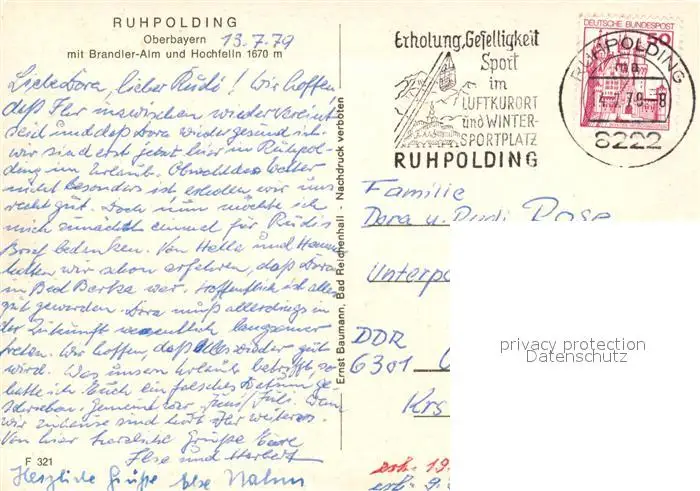 RUHPOLDING
Oberbayern
mit Brandler-Alm und Hochfelln 1670 m
13.7.79
Liebe Dora, lieber Rudi! Wir hoffen
daß Ihr inzwischen wieder vereint
seid und daß Dora wieder gesund ist.
Wir sind erst jetzt hier in Ruhpol-
ding im Urlaub. Obwohl das Wetter
nicht besonders ist erholen wir uns
recht gut. Doch nun möchte ich
mich zunächst einmal für Rudis
Brief bedanken. Von Hella und
hatten wir schon erfahren, daß Dora
in Bad Berka war. Hoffentlich ist alles
gut geworden. Dora muß allerdings in
der Zukunft wesentlich langsamer
treten. Wir hoffen, daß alles wieder gut
wird. Was unsern Urlaub betrifft, so
hatte ich Euch ein falsches Datum ge-
schrieben. Gemeint war Juni/Juli. Wenn
wir zuhause sind hört Ihr weiteres.
Von hier herzliche Grüße Eure
Ilse und Herbert
F 321
Herzliche Grüße
Ernst Baumann, Bad Reichenhall - Nachdruck verboten
Erholung, Geselligkeit
Sport
im
LUFTKURORT
und WINTER-
SPORTPLATZ
RUHPOLDING
DEUTSCHE BUNDESPOST
50
RUHPOLDING
ma
79-8
8222
Familie
Dora u. Rudi Rose
Unterpo
DDR
6301
Krs
privacy protection
Datenschutz
erh. 19.